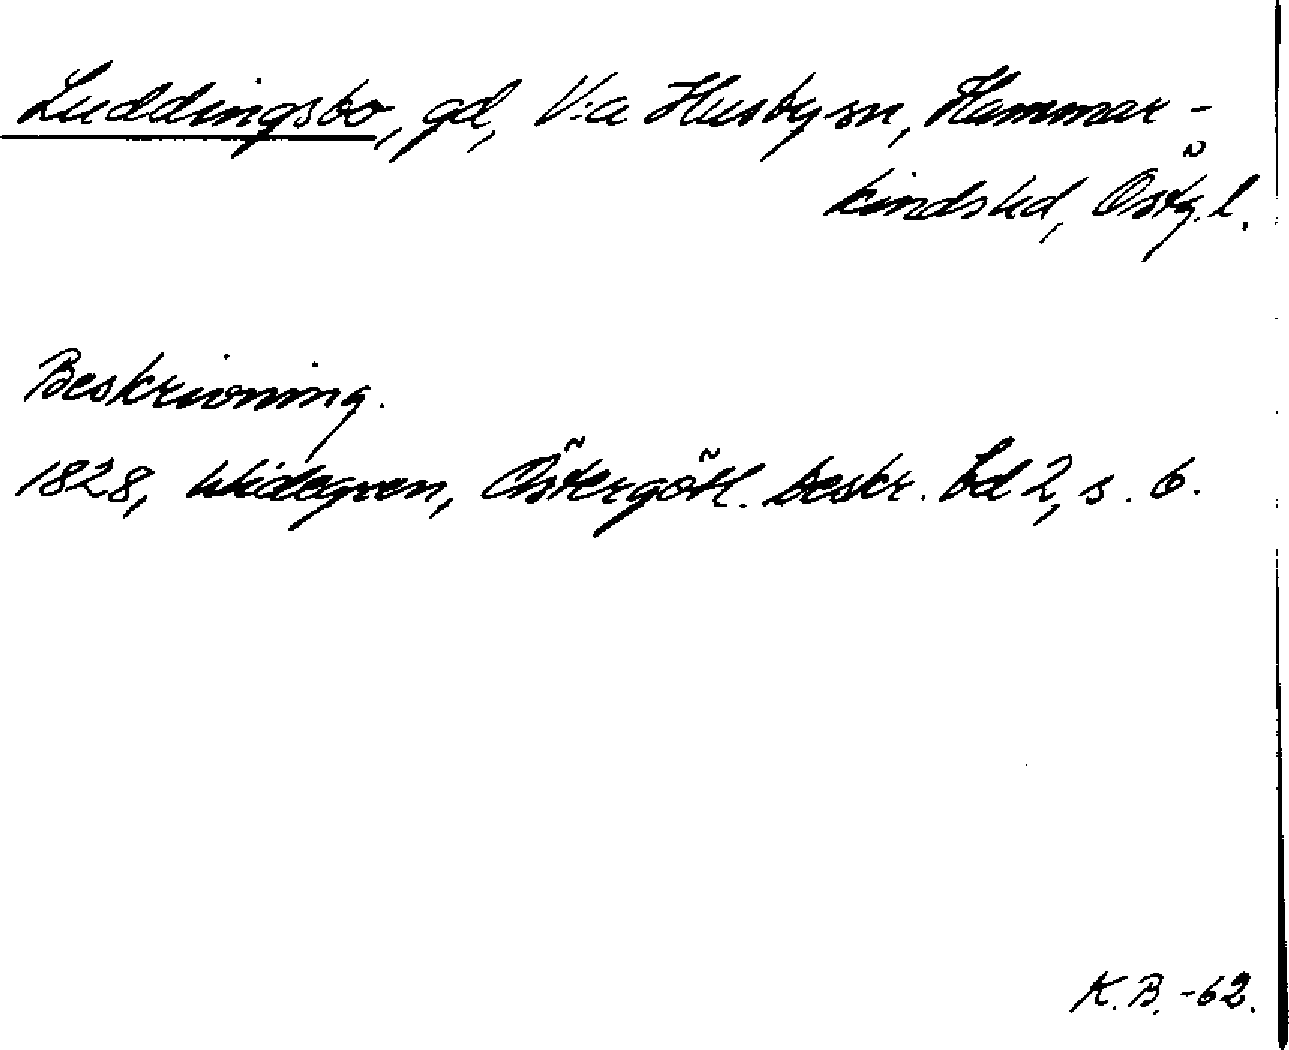 Luddingsbo, gd, V:a Husby sn, Hammar-
kindshd, Östg.l.
Beskrivning.
1828, Widegren, Östergötl. beskr. bd 2, s. 6.
K.B. -62.